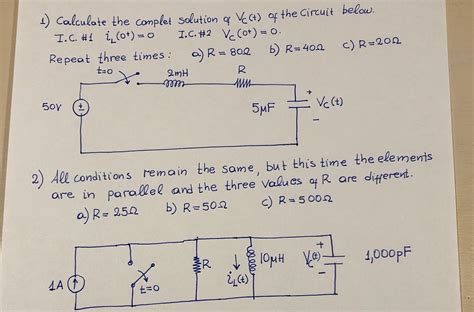 1) Calculate the complet solution of Vc(t) of the Circuit below.
I.C. #1 iL(0+) = 0 I.C. #2 Vc(0+) = 0.
Repeat three times: a) R = 80Ω b) R = 40Ω c) R = 20Ω
t=0
2mH
R
50V
+
-
5μF
+
Vc(t)
-
2) All conditions remain the same, but this time the elements
are in parallel and the three values of R are different.
a) R = 25Ω b) R = 50Ω c) R = 500Ω
1A
t=0
R
iL(t)
10μH
+
Vc(t)
-
1,000pF